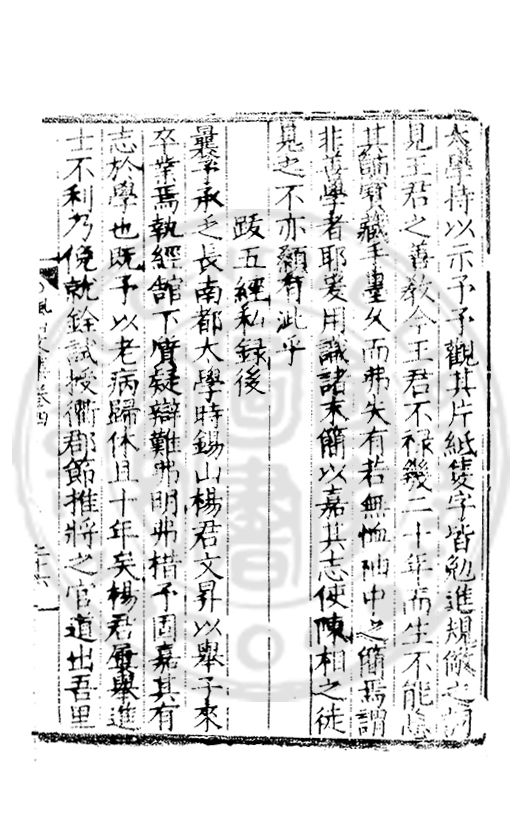 太學持以示予予觀其片紙隻字皆勉進規儆之詞
見王君之善教今王君不祿幾二十年而生不能忘
其師寶藏手畫久而弗失有若無恤袖中之簡焉謂
非善學者耶爰用識諸末簡以嘉其志使陳相之徒
見之不亦顙有泚乎
跋五經私録後
曩予承乏長南都太學時錫山楊君文昇以舉子來
卒業焉執經舘下質疑辯難弗明弗措予固嘉其有
志於學也既予以老病歸休且十年矣楊君屢舉進
士不利乃俛就銓試授衢郡節推將之官道出吾里
文集卷四
二十六